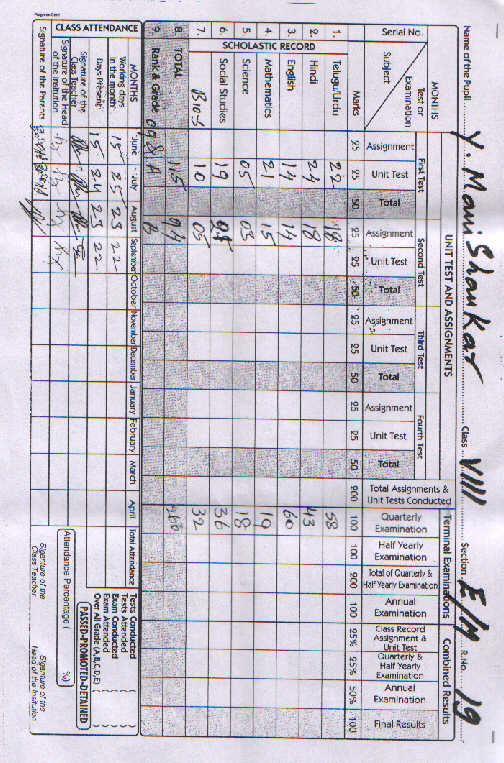 Progress Card
Name of the Pupil Y. Mani Shankar Class VIII Section E/M R.No. 19
Serial No. MONTHS UNIT TEST AND ASSIGNMENTS Terminal Examinations Combined Results
Subject Test or Examination First Test Second Test Third Test Fourth Test
Assignment Unit Test Total Assignment Unit Test Total Assignment Unit Test Total Assignment Unit Test Total Total Assignments & Unit Tests Conducted Quarterly Examination Half Yearly Examination Total of Quarterly & Half Yearly Examination Annual Examination Class Record Assignment & Unit Test Quarterly & Half Yearly Examination Annual Examination Final Results
Marks 25 25 50 25 25 50 25 25 50 25 25 50 100 100 100 25% 25% 50% 100
SCHOLASTIC RECORD
1. Telugu/Urdu 22 18 58
2. Hindi 24 18 43
3. English 14 14 60
4. Mathematics 21 15 19
5. Science 05 03 18
6. Social Studies 19 05 36
7. Bio-S 10 05 32
8. TOTAL 115
9. Rank & Grade B
CLASS ATTENDANCE
MONTHS June July August September October November December January February March April Total Attendance
Working days in the month 15 25 23 22
Days Present 15 24 23 22
Signature of the Class Teacher
Signature of the Head of the Institution
Signature of the Parents
Tests Conducted
Tests Attended
Exam Conducted
Exam Attended
Over All Grade (A,B,C,D,E)
PASSED-PROMOTED-DETAINED
Attendance Percentage : %
Signature of the Class Teacher
Signature of the Head of the Institution